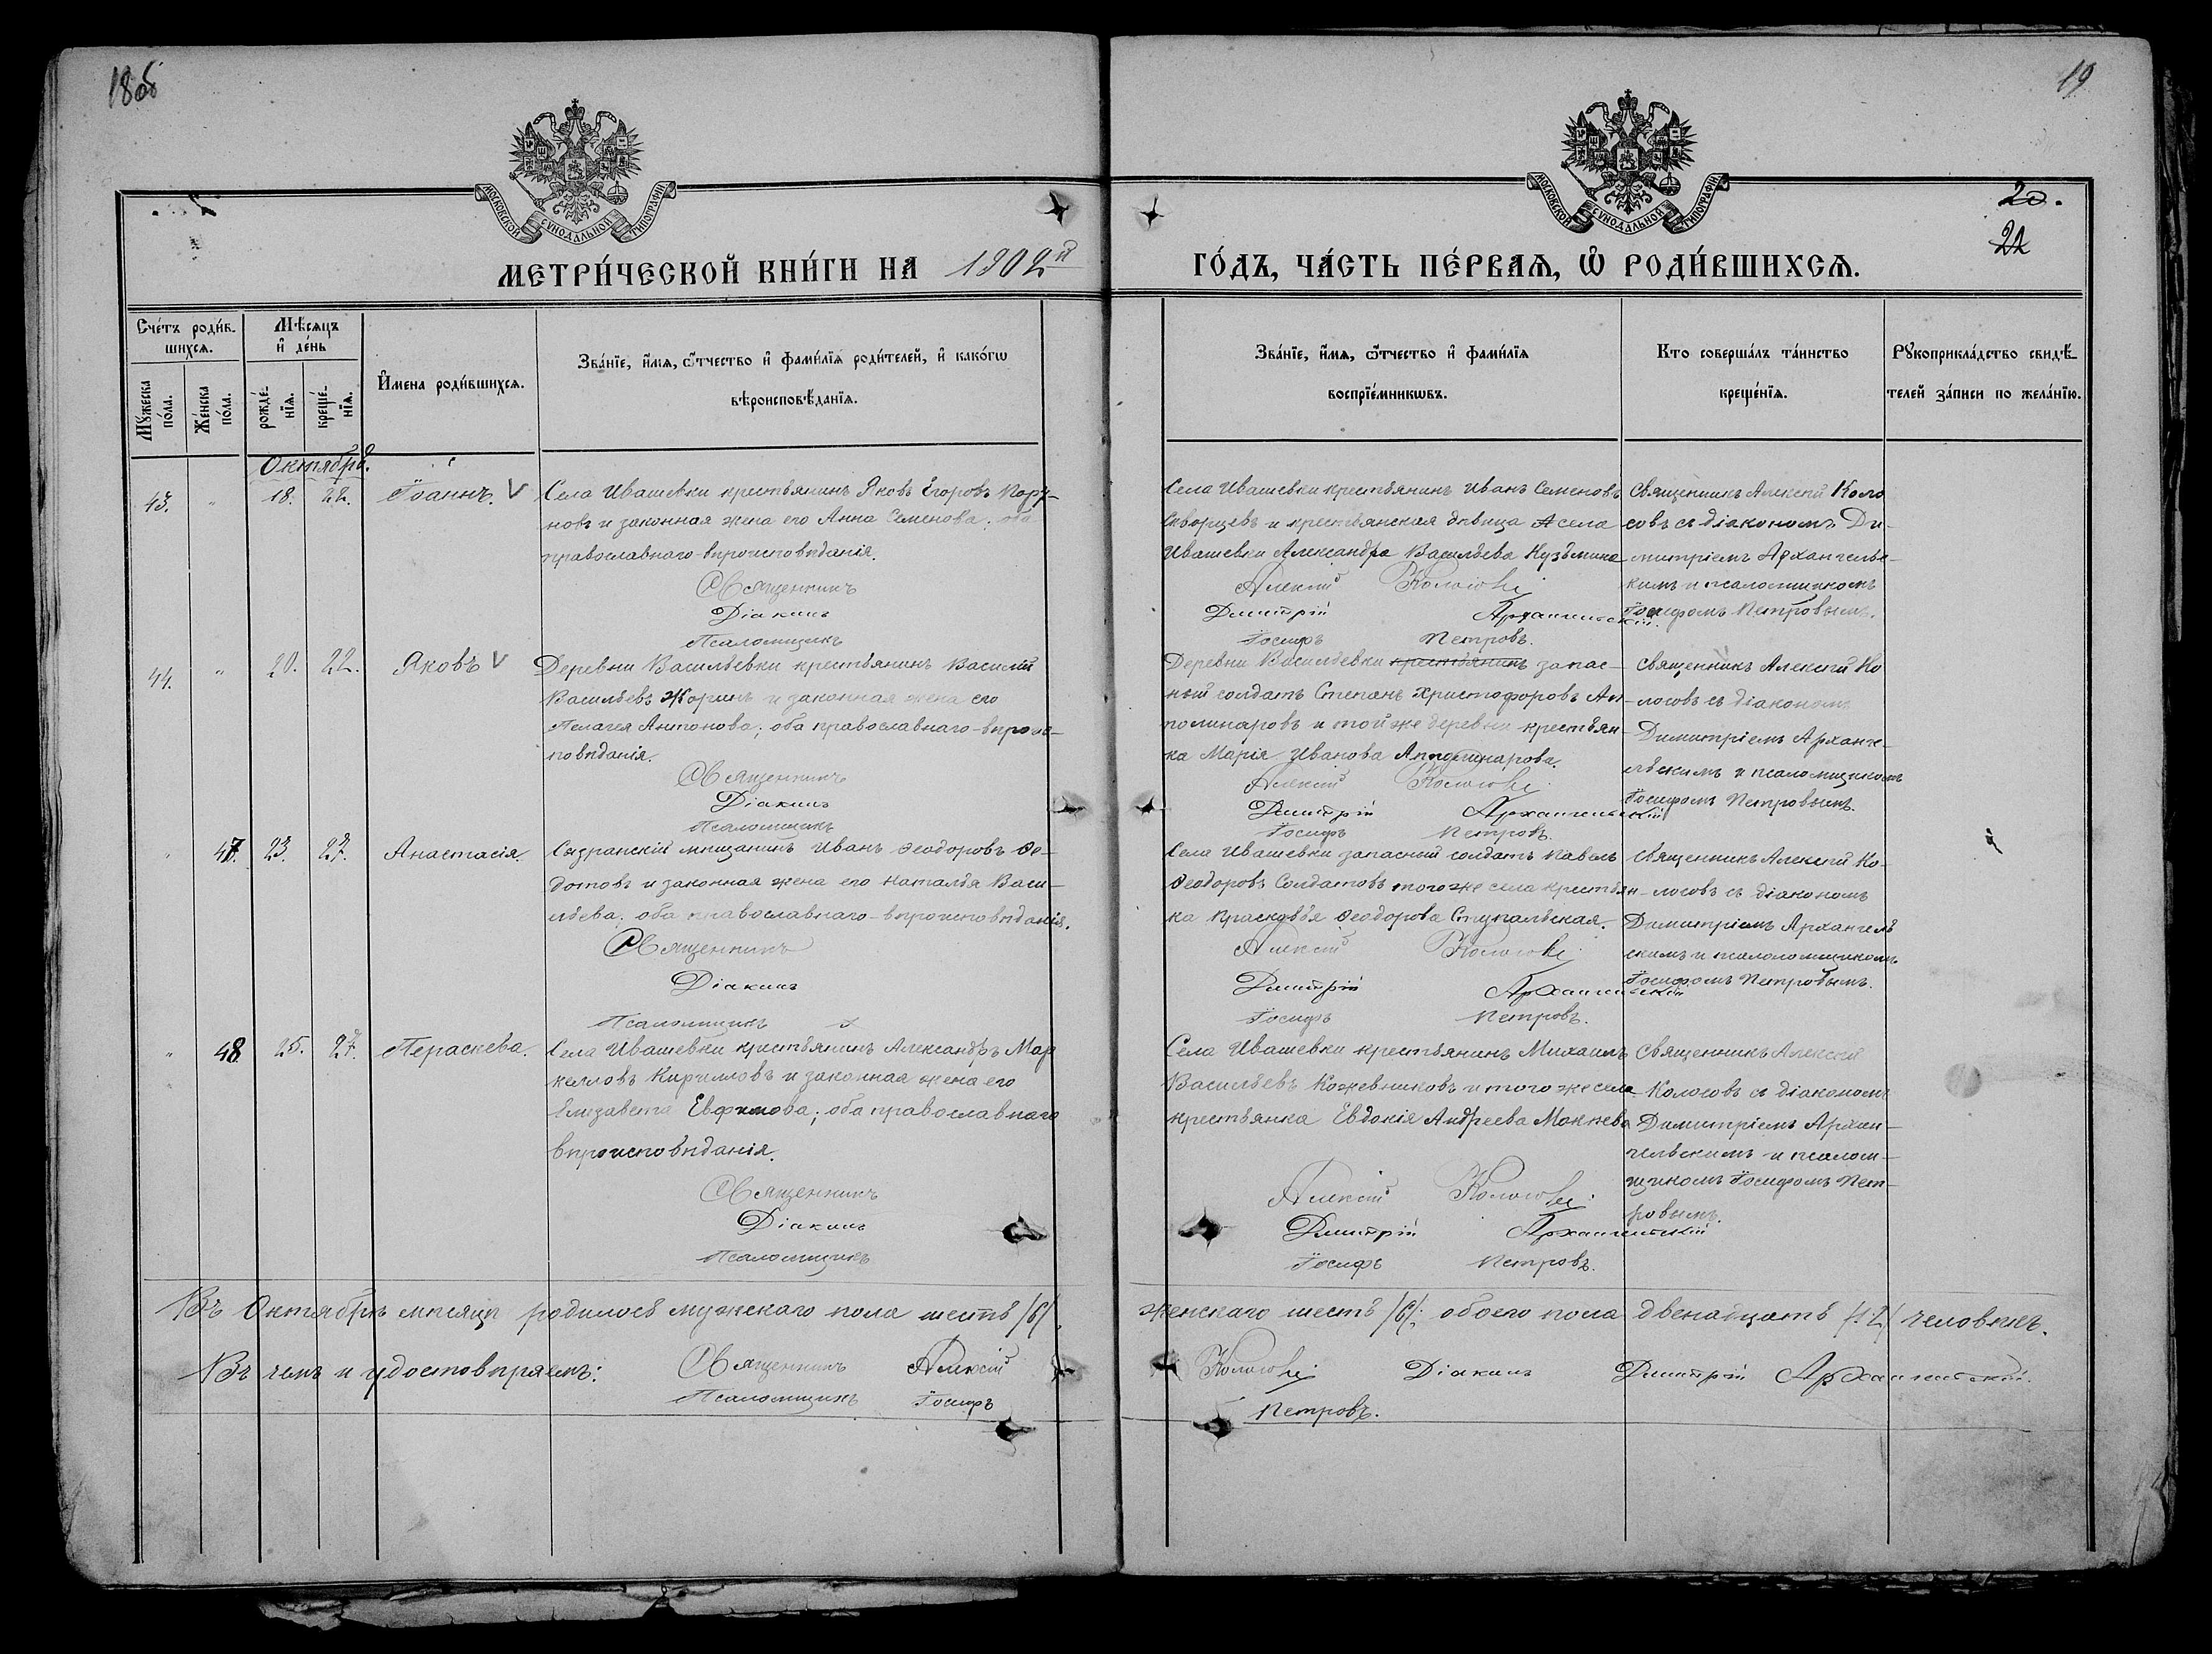 18об
19
МОСКОВСКОЙ СѴНОДАЛЬНОЙ ТИПОГРАФІИ
МОСКОВСКОЙ СѴНОДАЛЬНОЙ ТИПОГРАФІИ
20.
22
МЕТРИ́ЧЕСКОЙ КНИ́ГИ НА 1902й
ГО́ДЪ, ЧА́СТЬ ПЕ́РВАѦ, Ѡ҆ РОДИ́ВШИХСѦ.
Сче́тъ роди́в-
шихсѧ.
Мꙋ́жеска по́ла.
Же́нска по́ла.
Мѣ́сѧцъ
и҆ де́нь
рожде́-нїѧ.
креще́-нїѧ.
И҆́мена роди́вшихсѧ.
Зва́нїе, и҆́мѧ, ѻ҆́тчество и҆ фами́лїѧ роди́телей, и҆ како́гѡ
вѣроисповѣ́данїѧ.
Зва́нїе, и҆́мѧ, ѻ҆́тчество и҆ фами́лїѧ
воспрїе́мникѡвъ.
Кто соверша́лъ та́инство
креще́нїѧ.
Рꙋкоприкла́дство свидѣ́-
телей за́писи по жела́нїю.
Октябрь.
43. " 18. 22. Іоаннъ. V
Села Ивашевки крестьянинъ Яковъ Егоровъ Кору-
новъ и законная жена его Анна Семенова; оба
православнаго-вѣроисповѣданія.
Священникъ
Діаконъ
Псаломщикъ
Села Ивашевки крестьянинъ Иванъ Семеновъ
Скворцевъ и крестьянская дѣвица села
Ивашевки Александра Васильева Кузьмина
Алексій Колосовъ
Димитрій Архангельскій.
Іосифъ Петровъ.
Священникъ Алексѣй Коло
совъ съ діакономъ Ди-
митріемъ Архангельс-
кимъ и псаломщикомъ
Іосифомъ Петровымъ.
44. " 20. 22. Яковъ V
Деревни Васильевки крестьянинъ Василій
Васильевъ Жоринъ и законная жена его
Пелагея Антонова; оба православнаго-вѣроис-
повѣданія.
Священникъ
Діаконъ
Псаломщикъ
Деревни Васильевки крестьянинъ запас-
ный солдатъ Степанъ Христофоровъ Ап-
полинаровъ и той же деревни крестьян-
ка Марія Иванова Апполинарова.
Алексій Колосовъ
Димитрій Архангельскій
Іосифъ Петровъ.
Священникъ Алексѣй Ко
лосовъ съ діакономъ
Димитріемъ Арханге-
льскимъ и псаломщикомъ
Іосифомъ Петровымъ.
" 47. 23. 27. Анастасія.
Сызранскій мѣщанинъ Иванъ Ѳеодоровъ Ѳе-
дотовъ и законная жена его Наталья Васи-
льева; оба православнаго-вѣроисповѣданія.
Священникъ
Діаконъ
Псаломщикъ
Села Ивашевки запасный солдатъ Павелъ
Ѳеодоровъ Солдатовъ того же села крестьян-
ка Прасковья Ѳеодорова Ступальская.
Алексій Колосовъ
Димитрій Архангельскій
Іосифъ Петровъ.
Священникъ Алексѣй Ко-
лосовъ съ діакономъ
Димитріемъ Архангель
скимъ и псаломщикомъ
Іосифомъ Петровымъ.
" 48 25. 27. Параскева.
Села Ивашевки крестьянинъ Александръ Мар
келловъ Кирилловъ и законная жена его
Елизавета Евфимова; оба православнаго
вѣроисповѣданія.
Священникъ
Діаконъ
Псаломщикъ
Села Ивашевки крестьянинъ Михаилъ
Васильевъ Кожевниковъ и того же села
крестьянка Евдокія Андреева Мокнева
Алексій Колосовъ
Димитрій Архангельскій
Іосифъ Петровъ.
Священникъ Алексѣй
Колосовъ съ діакономъ
Димитріемъ Архан-
гельскимъ и псалом-
щикомъ Іосифомъ Пет-
ровымъ.
Въ Октябрѣ мѣсяцѣ родилось мужскаго пола шесть /6/, женскаго шесть /6/; обоего пола двенадцать /12/ человѣкъ.
Въ чемъ и удостовѣряемъ: Священникъ Алексій Колосовъ Діаконъ Димитрій Архангельскій.
Псаломщикъ Іосифъ Петровъ.